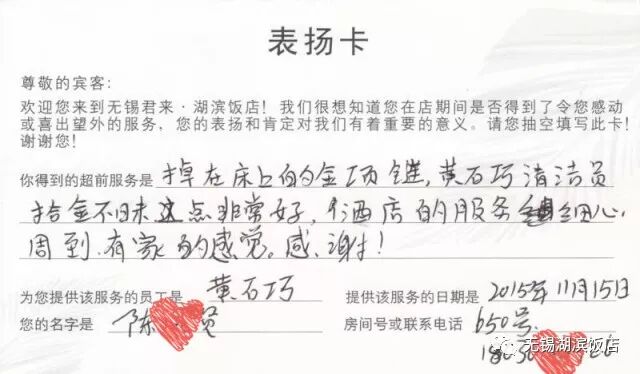 表扬卡
尊敬的宾客：
欢迎您来到无锡君来·湖滨饭店！我们很想知道您在店期间是否得到了令您感动
或喜出望外的服务，您的表扬和肯定对我们有着重要的意义。请您抽空填写此卡！
谢谢您！
你得到的超前服务是 掉在床上的金项链，黄石巧清洁员
拾金不昧这点非常好，酒店的服务细心
周到，有家的感觉。感谢！
为您提供该服务的员工是 黄石巧 提供该服务的日期是 2015年11月15日
您的名字是 陈 贤 房间号或联系电话 650号
无锡湖滨饭店